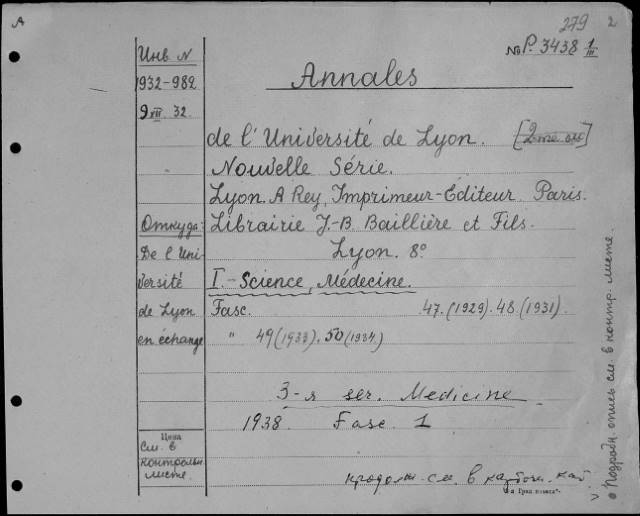 A
279 2
№ Р. 3438 1/III
Инв N
1932-982
9 XII 32.
Annales
de l'Université de Lyon. [2me]
Nouvelle Série.
Lyon. A Rey, Imprimeur-Editeur. Paris.
Откуда
Librairie J.-B. Baillière et Fils.
De l'Uni-
Lyon. 8°
versité
I.- Science, Médecine.
de Lyon
Fasc. 47. (1929). 48. (1931).
en échange
" 49 (1933). 50 (1934.)
3-я ser. Medicine
1938. Fasc 1
Цена
см. в
контрольн
листе.
продолж. см. в карточн. кат.
Подробн. опись см. в контр. листе.